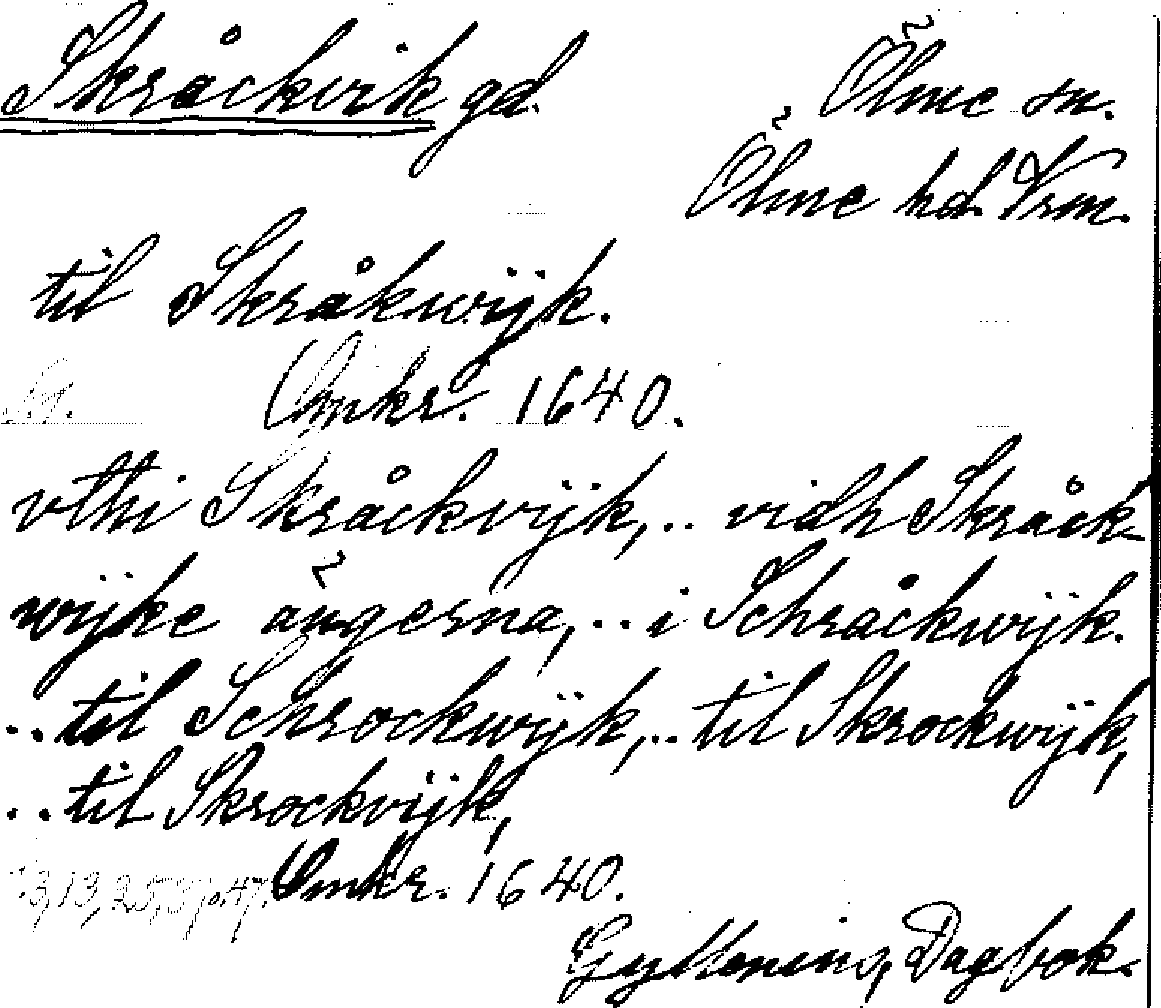 Skråckvik gd.
Ölme sn.
Ölme hd. Vrm.
til Skråkwijk.
Omkr. 1640.
vthi Skråckvijk, .. vidh Skråck-
wijke ängerna, .. i Schråckwijk.
.. til Schrockwijk, .. til Skrockwijk,
.. til Skrockvijk,
Omkr. 1640.
Gyllenius, Dagbok.